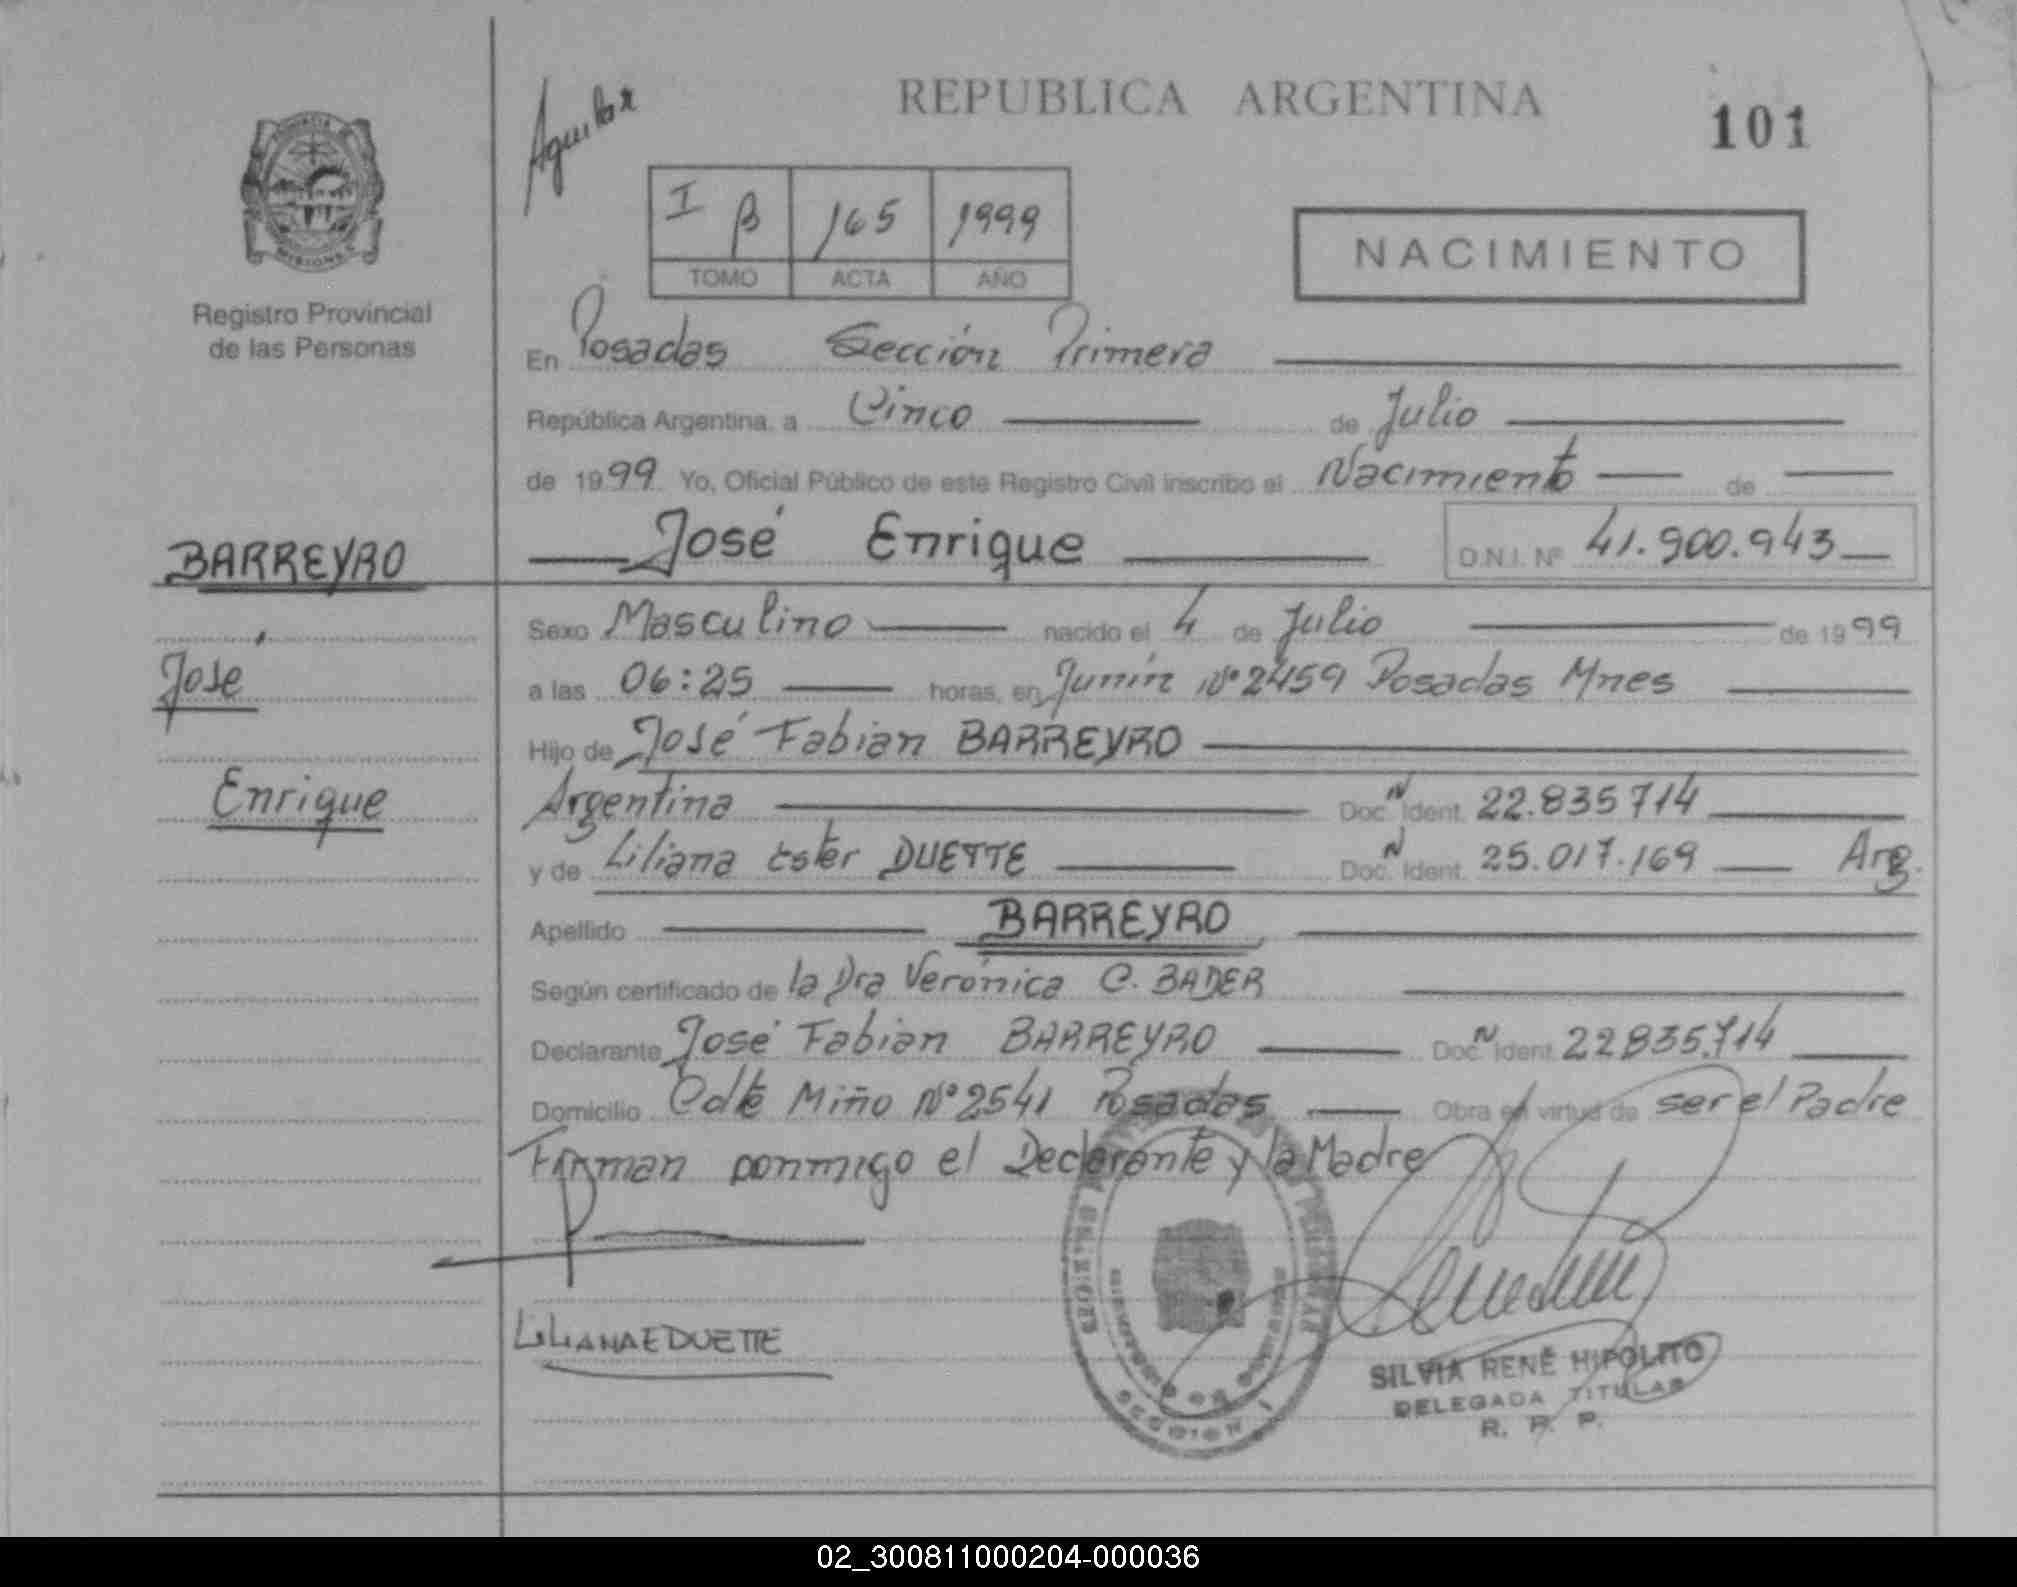 REPUBLICA ARGENTINA
101
Aguilar
PROVINCIA DE
MISIONES
Registro Provincial
de las Personas
I B 165 1999
TOMO ACTA AÑO
NACIMIENTO
En Posadas Sección Primera
República Argentina, a Cinco de Julio
de 1999 Yo, Oficial Público de este Registro Civil inscribo el Nacimiento de
José Enrique D.N.I. Nº 41.900.943
BARREYRO
José
Enrique
Sexo Masculino nacido el 4 de Julio de 1999
a las 06:25 horas, en Junín Nº 2459 Posadas Mnes
Hijo de José Fabian BARREYRO
Argentina Doc. N Ident. 22.835714
y de Liliana Ester DUETTE Doc. N Ident. 25.017.169 Arg.
Apellido BARREYRO
Según certificado de la Dra Verónica C. BADER
Declarante José Fabian BARREYRO Doc. N Ident. 22835.714
Domicilio Cdte Miño Nº 2541 Posadas Obra en virtud de ser el Padre
Firman conmigo el Declarante y la Madre
LILIANA E DUETTE
SECCION I
SILVIA RENÉ HIPOLITO
DELEGADA TITULAR
R. P. P.
02_300811000204-000036